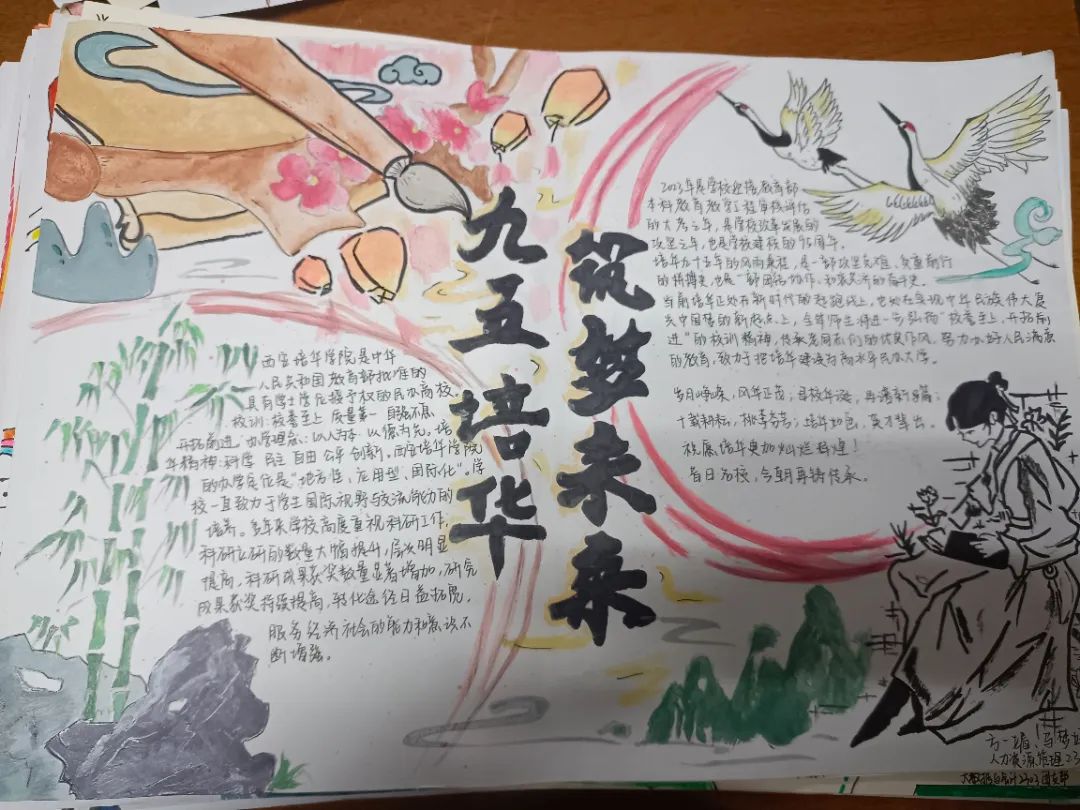 九五培华
筑梦未来
西安培华学院是中华
人民共和国教育部批准的
具有学士学位授予权的民办高校。
校训:校誉至上 质量第一 自强不息
开拓前进。办学理念:以人为本 以德为先。培
华精神:科学 民主 自由 公平 创新。西安培华学院
的办学定位是“地方性、应用型、国际化”。学
校一直致力于学生国际视野与交流能力的
培养。多年来学校高度重视科研工作,
科研立研的数量大幅提升,层次明显
提高,科研成果获奖数量显著增加,研究
成果获奖持续提高,转化途径日益拓宽,
服务经济社会的能力和意识不
断增强。
2023年是学校迎接教育部
本科教育教学工程审核评估
的大考之年,是学校改革发展的
攻坚之年,也是学校建校的95周年。
培华九十五年的风雨兼程,是一部攻坚克难、负重前行
的拼搏史,也是一部团结协作、和衷共济的奋斗史。
当前培华正处在新时代的起跑线上,也处在实现中华民族伟大复
兴中国梦的新起点上,全体师生将进一步弘扬“校誉至上,开拓前
进”的校训精神,传承老同志们的优良作风,努力办好人民满意
的教育,致力于把培华建设为高水平民办大学。
岁月峥嵘,风华正茂;母校华诞,再谱新篇;
十载耕耘,桃李芬芳;培华如也,英才辈出。
祝愿培华更加灿烂辉煌!
昔日名校,今朝再铸传承。
人力资源管理23